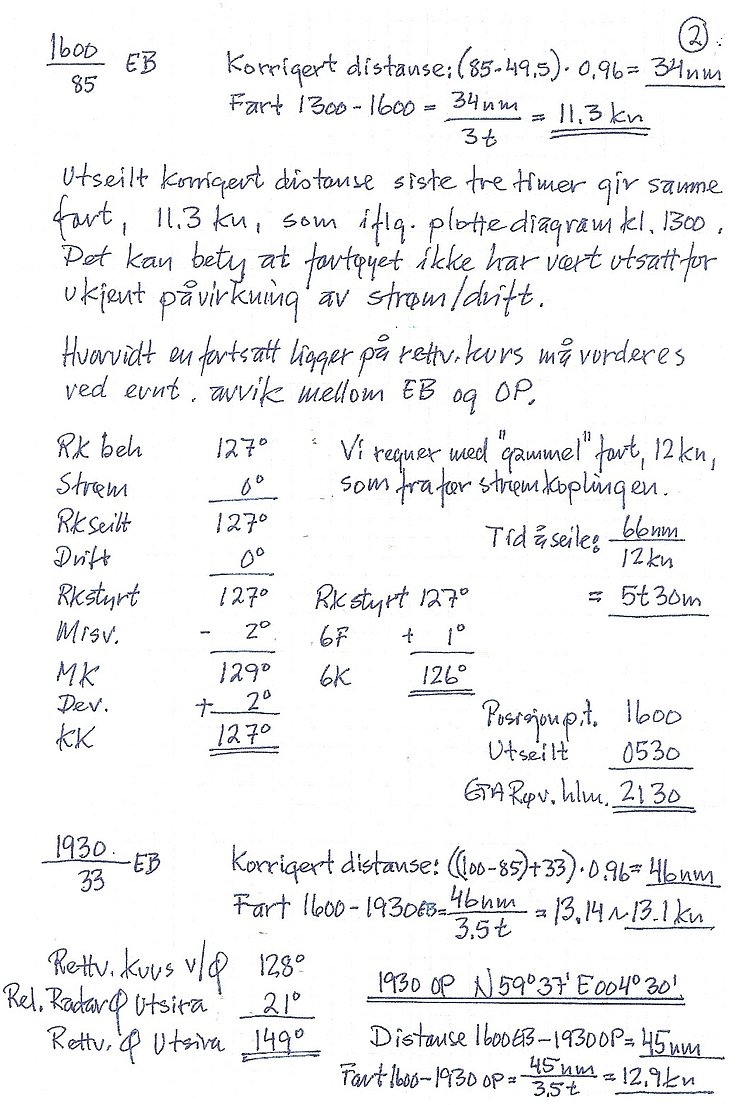 ②
1600/85 EB Korrigert distanse: (85-49.5) · 0.96 = 34nm
Fart 1300-1600 = 34nm/3t = 11.3 kn
Utseilt korrigert distanse siste tre timer gir samme
fart, 11.3 kn, som iflg. plottediagram kl. 1300.
Det kan bety at fartøyet ikke har vært utsatt for
ukjent påvirkning av strøm/drift.
Hvorvidt en fortsatt ligger på rettv. kurs må vurderes
ved evnt. avvik mellom EB og OP.
RK beh 127° Vi regner med "gammel" fart, 12 kn,
Strøm 0° som fra før strømkoplingen.
RK seilt 127° Tid å seile: 66nm/12kn
Drift 0°
RK styrt 127° RK styrt 127° = 5t30m
Misv. - 2° GF + 1°
MK 129° GK 126°
Dev. + 2° Posisjon p.t. 1600
KK 127° Utseilt 0530
ETA Røv. hlm. 2130
1930/33 EB Korrigert distanse: ((100-85)+33) · 0.96 = 46nm
Fart 1600-1930EB = 46nm/3.5t = 13.14 ~ 13.1 kn
Rettv. kurs v/φ 128° 1930 OP N59°37' E004°30'
Rel. Radar φ Utsira 21°
Rettv. φ Utsira 149° Distanse 1600EB-1930OP = 45nm
Fart 1600-1930 OP = 45nm/3.5t = 12.9kn